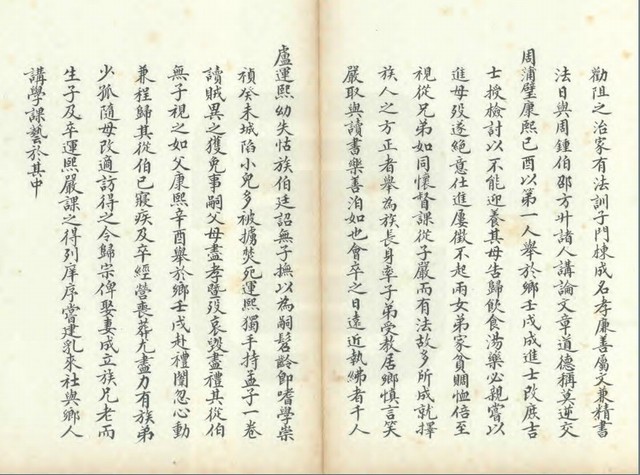 勸阻之治家有法訓子門棟成名孝廉善屬文兼精書
法日與周鍾伯邵方廾諸人講論文章道德稱莫逆交
周蒲璧康熙己酉以第一人舉於鄉壬戌成進士改庶吉
士授檢討以不能迎養其母告歸飲食湯藥必親嘗以
進母歿遂絕意仕進屢徵不起兩女弟家貧賙恤倍至
視從兄弟如同懷督課從子嚴而有法故多所成就擇
族人之方正者舉為族長身率子弟受教居鄉慎言笑
嚴取與讀書樂善泊如也會卒之日遠近執紼者千人
盧運熙幼失怙族伯廷詔無子撫以為嗣髫齡即嗜學崇
禎癸未城陷小兒多被擄獘死運熙獨手持孟子一卷
讀賊異之獲免事嗣父母盡孝暨歿哀毀盡禮其從伯
無子視之如父康熙辛酉舉於鄉壬戌赴禮闈忽心動
兼程歸其從伯已寢疾及卒經營喪葬尤盡力有族弟
少孤隨母改適訪得之令歸宗俾娶妻成立族兄老而
生子及卒運熙嚴課之得列庠序嘗建乳來社與鄉人
講學課藝於其中